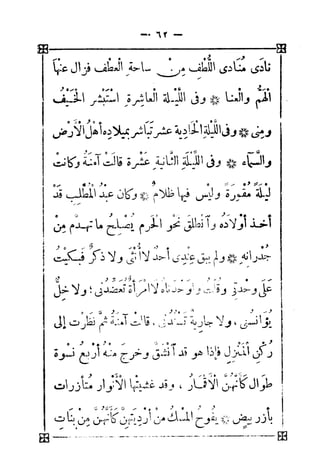 — ٦٢ —
نادى مُنادى اللُّطفِ مِنْ ساحةِ العطف فزال عنها
الهَمُّ والعنا * وفى اللَّيْلَة العاشرةِ اسْتَبْشَر الخَيْفُ
ومِنى * وفى اللَّيْلةِ الحَادِيةَ عشر تباشر بميلاده أهْلُ الأرْضِ
والسَّماء * وفى اللَّيْلَةِ الثَّانيةَ عَشْرَةَ قالَتْ آمنَةُ وكانَتْ
ليلةً مُقْمِرَةً وليْس فيها ظلامٌ * وكان عبْدُ المُطَّلِب قَدْ
أخذ أوْلَادَهُ وانْطَلَقَ نحوَ الحرم يُصْلِحُ ما تهدّم مِنْ
جُدْرانِهِ * ولم يبق عِنْدِى أحَدٌ لا أُنْثَى ولا ذكرٌ فبكَيْتُ
على وحْدتِى وقُلْتُ واوحدتاه لا امْرأةٌ تعضُدُنى ، ولا خِلٌّ
يُؤَانِسُنى ، ولا جاريةٌ تسْنُدُنى . قالتْ آمنَةُ ثمَّ نظرت إلى
رُكْنِ المنزِل فإذا هو قد انْشَقَّ وخرج منْهُ أربعُ نسوة
طوال كأنَّهُنَّ الأقمارُ ، وقد غشيتْها الأنْوارُ مُتأزِرات
بأُزر بيضٍ * يفُوحُ المِسْكُ منْ أرْديَتهِنَّ كأنَّهُنَّ مِنْ بنَاتِ